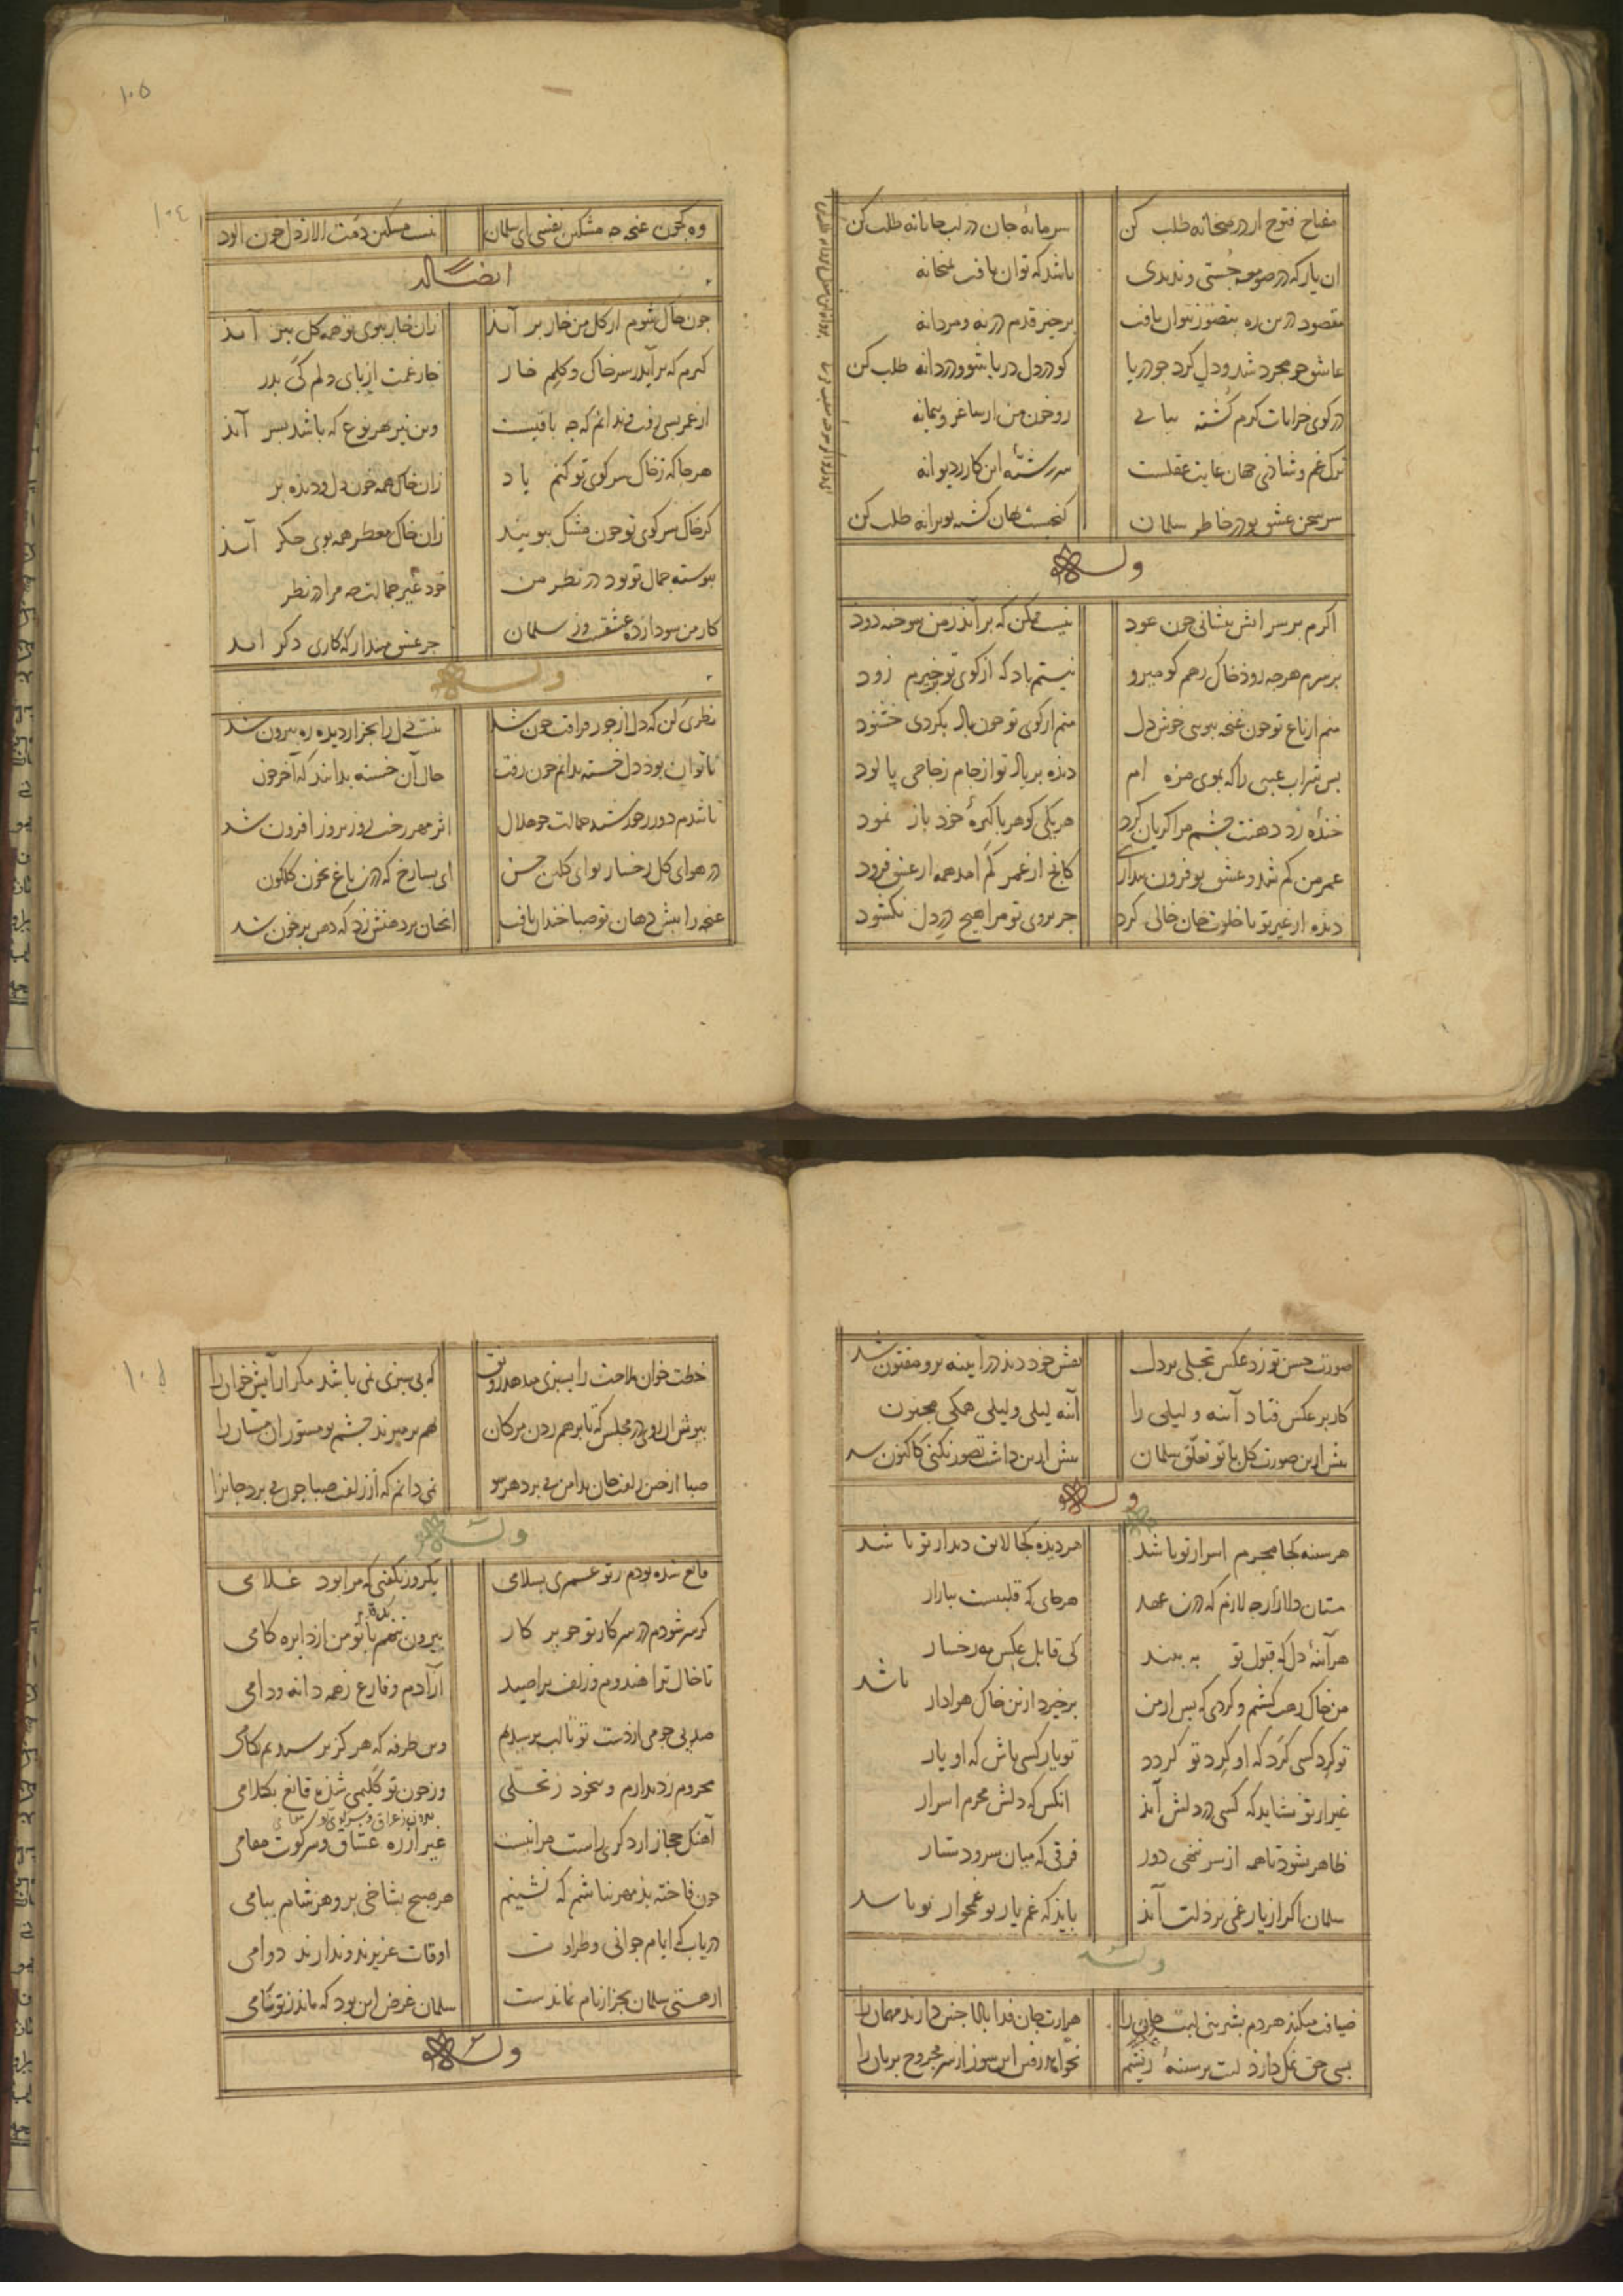 مفتاح فتوح از در میخانه طلب کن سرمایهٔ جان در لب جانانه طلب کن
ان یار که در صومعه جستی و ندیدی باشد که توان یافت بمیخانه
مقصود درین ره بتصور نتوان یافت برخیز قدم در نه و مردانه
عاشق چو مجرد شد و دل کرد چو دریا کو در دل دریا شو و دردانه طلب کن
در کوی خرابات کرم کشته بیابی رو خون من از ساغر و پیمانه
ترک غم و شادی جهان غایت عقلست سررشتهٔ این کار ز دیوانه
سلمان کنجیست نهان کشته بویرانه طلب کن
وله
اکرم بر سر اتش بنشانی چون عود نیست ممکن که براید ز من سوخته دود
بر سرم هرچه رود خاک رهم کو میرو نیستم باد که از کوی تو خیزم زود
منم از باغ تو چون غنچه ببویی خوش دل منم از کوی تو چون باد بکردی خشنود
دیده بر یاد تو از جام زجاجی پالود
خنده زد دهنت چشم مرا کریان کرد هر یکی کوهر پاکیزهٔ خود باز نمود
عمر من کم شد و عشق تو فزون پنداری کانچ از عمر کم امد همه از عشق فزود
دیده از غیر تو تا خلوت جان خالی کرد جز بروی تو مرا هیچ در دل نکشود
۱۰۵
۱۰٤
وه که چون غنچه چه مشکین نفسی ای سلمان نیست مسکین دمت الا ز دل خون الود
ایضا له
چون خاک شوم از کل من خار بر آید زان خار ببوی تو همه کل ببر آید
کیرم که برآید ز سر خاک و کلم خار خار غمت از پای دلم کی بدر
از عمر بسی رفت و ندانم که چه باقیست وین نیز بهر نوع که باشد بسر آید
هرجا که ز خاک سر کوی تو کنم یاد زان خاک همه خون دل و دیده بر
کر خاک سر کوی تو چون مشک ببویند زان خاک معطر همه بوی جکر آید
پیوسته جمال تو بود در نظر من خود غیر جمالت چه مرا در نظر
کار من سودازده عشقست و ز سلمان جز عشق مپندار که کاری دکر اید
وله
نظری کن که دل از جور فراقت خون شد نیست دل را بجز از دیده ره بیرون شد
ناتوان بود دل خسته ندانم چون رفت حال آن خسته بدانید که آخر چون
تا شدم دور ز خورشید جمالت چو هلال اثر مهر رخت روز بروز افزون شد
در هوای کل رخسار تو ای کلبن حسن ای بسا رخ که درین باغ بخون کلکون
غنچه را پیش دهان تو صبا خندان یافت انچنان بر دهنش زد که دهن پر خون شد
صورت حسن تو زد عکس تجلی بر دل نقش خود دید در آیینه برو مفتون شد
کار بر عکس فتاد آینه و لیلی را آینه لیلی و لیلی همکی مجنون
پیش ازین صورت کل با تو تعلق سلمان پیش ازین داشت تصور نکنی کاکنون شد
وله
هر سینه کجا محرم اسرار تو باشد هر دیده کجا لایق دیدار تو باشد
هر جای که قلبیست ببازار
هر آینهٔ دل که قبول تو ببیند کی قابل عکس مه رخسار
من خاک رهت کشتم و کردی که پس از من برخیزد ازین خاک هوادار باشد
تو کرد کسی کرد که او کرد تو کردد تو یار کسی باش که او یار
غیر از تو نشاید که کسی در دلش آید انکس که دلش محرم اسرار
ظاهر نشود تا همه از سر ننهی دور فرقی که میان سر و دستار
سلمان اکر از یار غمی بر دلت آید باید که غم یار تو غمخوار تو باشد
وله
ضیافت میکند هر دم بشیرینی لبت جان را هزارت جان فدا بادا چنین دارند مهمان را
بسی حق نمک دارد لبت بر سینهٔ ریشم نخواهد رفتن این سوز از سر مجروح بریان را
خطت خوان ملاحت را بسبزی میدهد رونق که بی سبزی نمی باشد مکر آرایش خوان را
بپوش ان روی در مجلس که تا بر هم زدن مژکان هم بر میزند چشم تو مستوران میان را
نمی دانم که از زلفت صبا چون می برد جان را
وله
قانع شده بودم ز تو عمری بسلامی یکروز نکفتی که مرا بود غلامی
کر سر شودم در سر کار تو چو پرکار بیرون ننهم با تو من از دایره کامی
تا خال ترا هندوم و زلف ترا صید آزادم و فارغ ز همه دانه و دامی
صد پی چو می از دست تو تا لب برسیدم وین طرفه که هرکز نرسیدیم بکامی
محروم ز دیدارم و بیخود ز تجلی وز چون تو کلیمی شده قانع بکلامی
آهنک حجاز ار دکری راست مرا نیست غیر از ره عشاق و سر کوت مقامی
چون فاخته بدمهر نباشم که نشینم هر صبح بشاخی بر و هر شام ببامی
دریاب که ایام جوانی و طراوت اوقات عزیزند و ندارند دوامی
از هستی سلمان بجز از نام نماندست سلمان غرض این بود که ماند ز تو نامی
وله